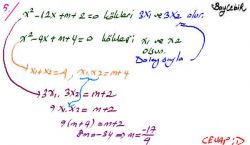 5/ x²-12x+m+2=0 kökleri 3x₁ ve 3x₂ olur.
x²-4x+m+4=0 kökleri x₁ ve x₂
olsun.
Dolayısıyla
x₁+x₂=4, x₁.x₂=m+4
3x₁.3x₂=m+2
9x₁.x₂=m+2
9(m+4)=m+2
8m=-34 ⇒ m=-17/4
CEVAP:D